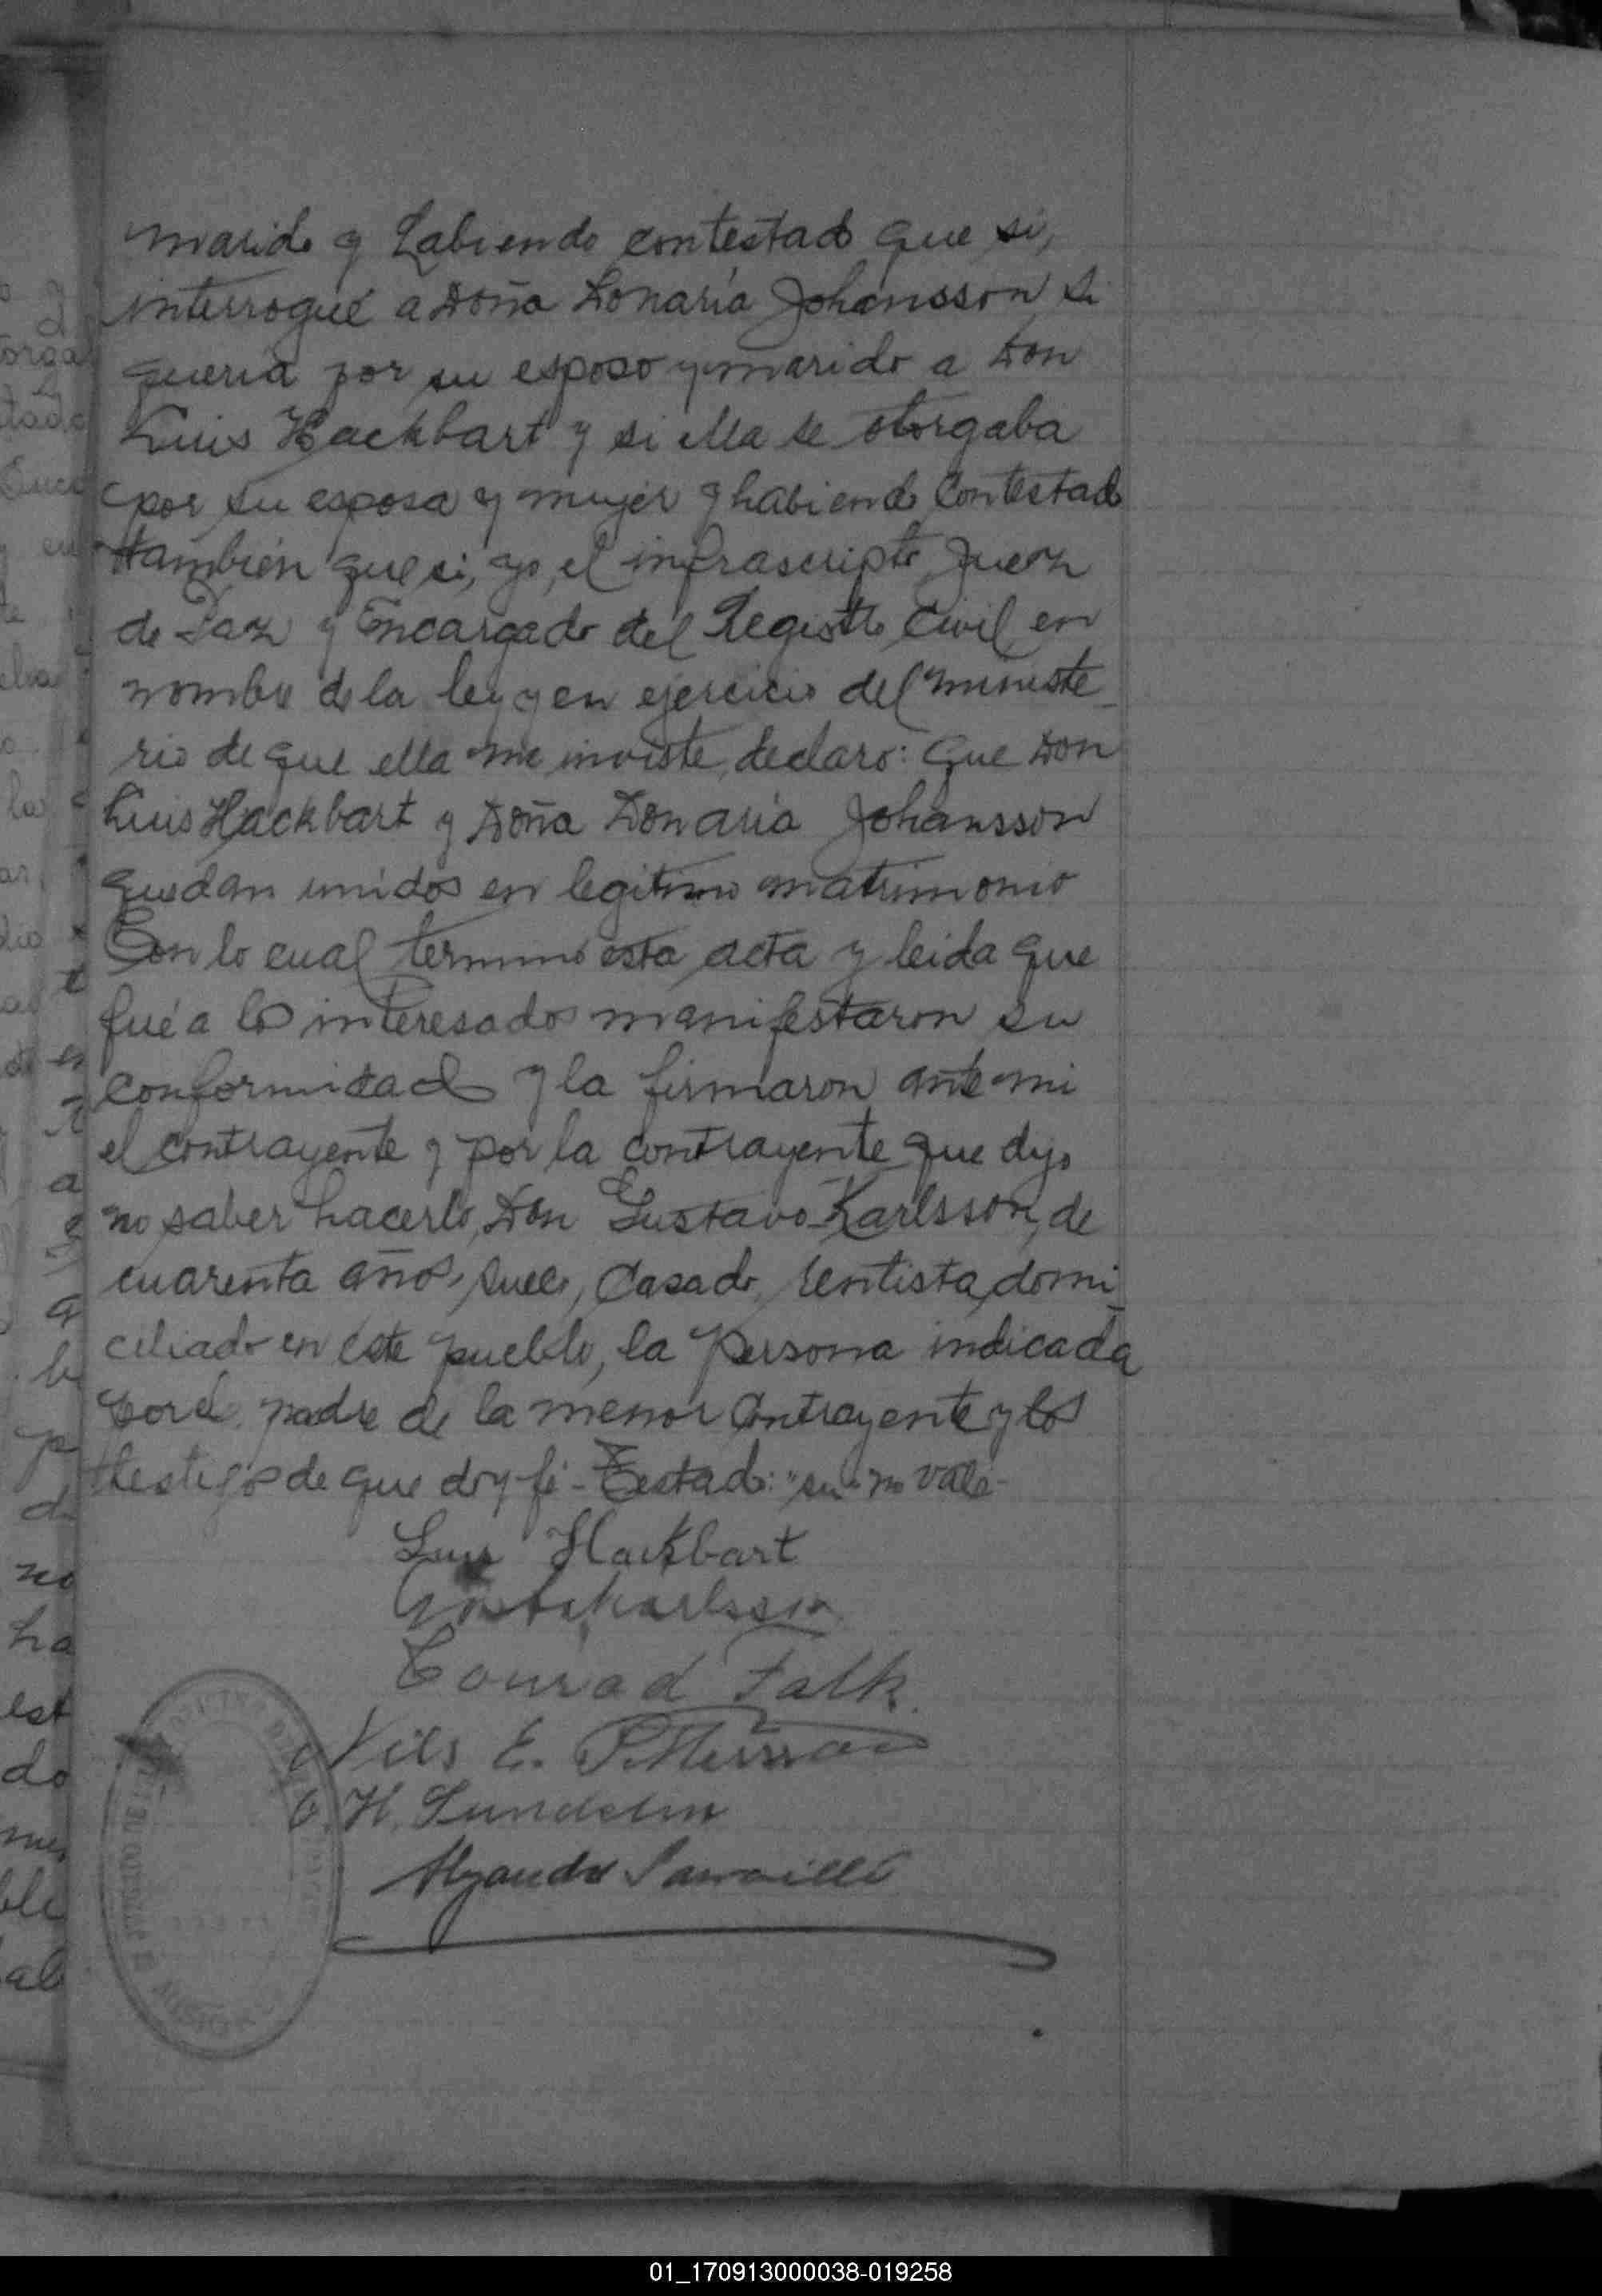 marido y habiendo contestado que si,
interrogué a Doña Donaria Johansson si
queria por su esposo y marido a Don
Luis Hackbart y si ella se otorgaba
por su esposa y mujer y habiendo contestado
también que si, yo, el infrascripto Juez
de Paz y Encargado del Registro Civil, en
nombre de la ley y en ejercicio del ministe-
rio de que ella me inviste, declaro: Que Don
Luis Hackbart y Doña Donaria Johansson
quedan unidos en legitimo matrimonio
Con lo cual terminó esta acta y leida que
fué a los interesados manifestaron su
conformidad y la firmaron ante mi
el contrayente y por la contrayente que dijo
no saber hacerlo, Don Gustavo Karlsson, de
cuarenta años, sueco, casado, rentista, domi-
ciliado en éste pueblo, la persona indicada
por el padre de la menor contrayente y los
testigos de que doy fé - Testado: "su" no vale-
Luis Hackbart
Gusta Karlsson
Conrad Falk
Nils E. Petterson
O. H. Sundelin
MISIONES
01_170913000038-019258